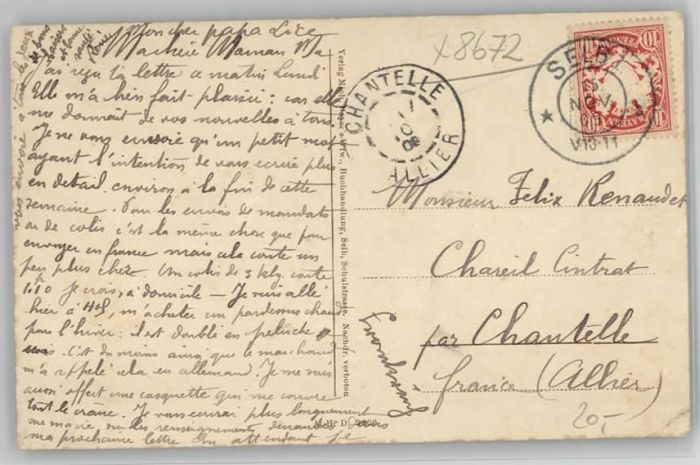 Mon cher papa
Ma chère Maman
J'ai reçu ta lettre ce matin Lundi
Elle m'a bien fait plaisir : car elle
me donnait de vos nouvelles à tous
Je ne vous envoie qu'un petit mot
ayant l'intention de vous écrire plus
en détail environ à la fin de cette
semaine. Pour les envois de mandats
ou de colis c'est la même chose que pour
envoyer en france mais cela coûte un
peu plus chère. Un colis de 3 klg coûte
1.60 je crois, à domicile — Je suis allé
hier à m'acheter un pardessus chaud
pour l'hiver : il est doublé en peluche
c'est du moins ainsi que le marchand
m'a appelé cela en allemand. Je me suis
aussi offert une casquette qui me couvre
tout le crane. Je vous écrirai plus longuement
ma vie ou les renseignements demandés dans
ma prochaine lettre En attendant je
vous envoie à tous les deux
bons
baisers
et bonne
santé
Verlag Buchhandlung, Selb, Schulstrasse. Nachdr. verboten
M. B. D.
CHANTELLE
ALLIER
08
x 8672
SELB
NOV
V.10-11
BAYERN
10
Monsieur Felix Renaudet
Chareil Cintrat
par Chantelle
france (Allier)
Frankreich
20,-